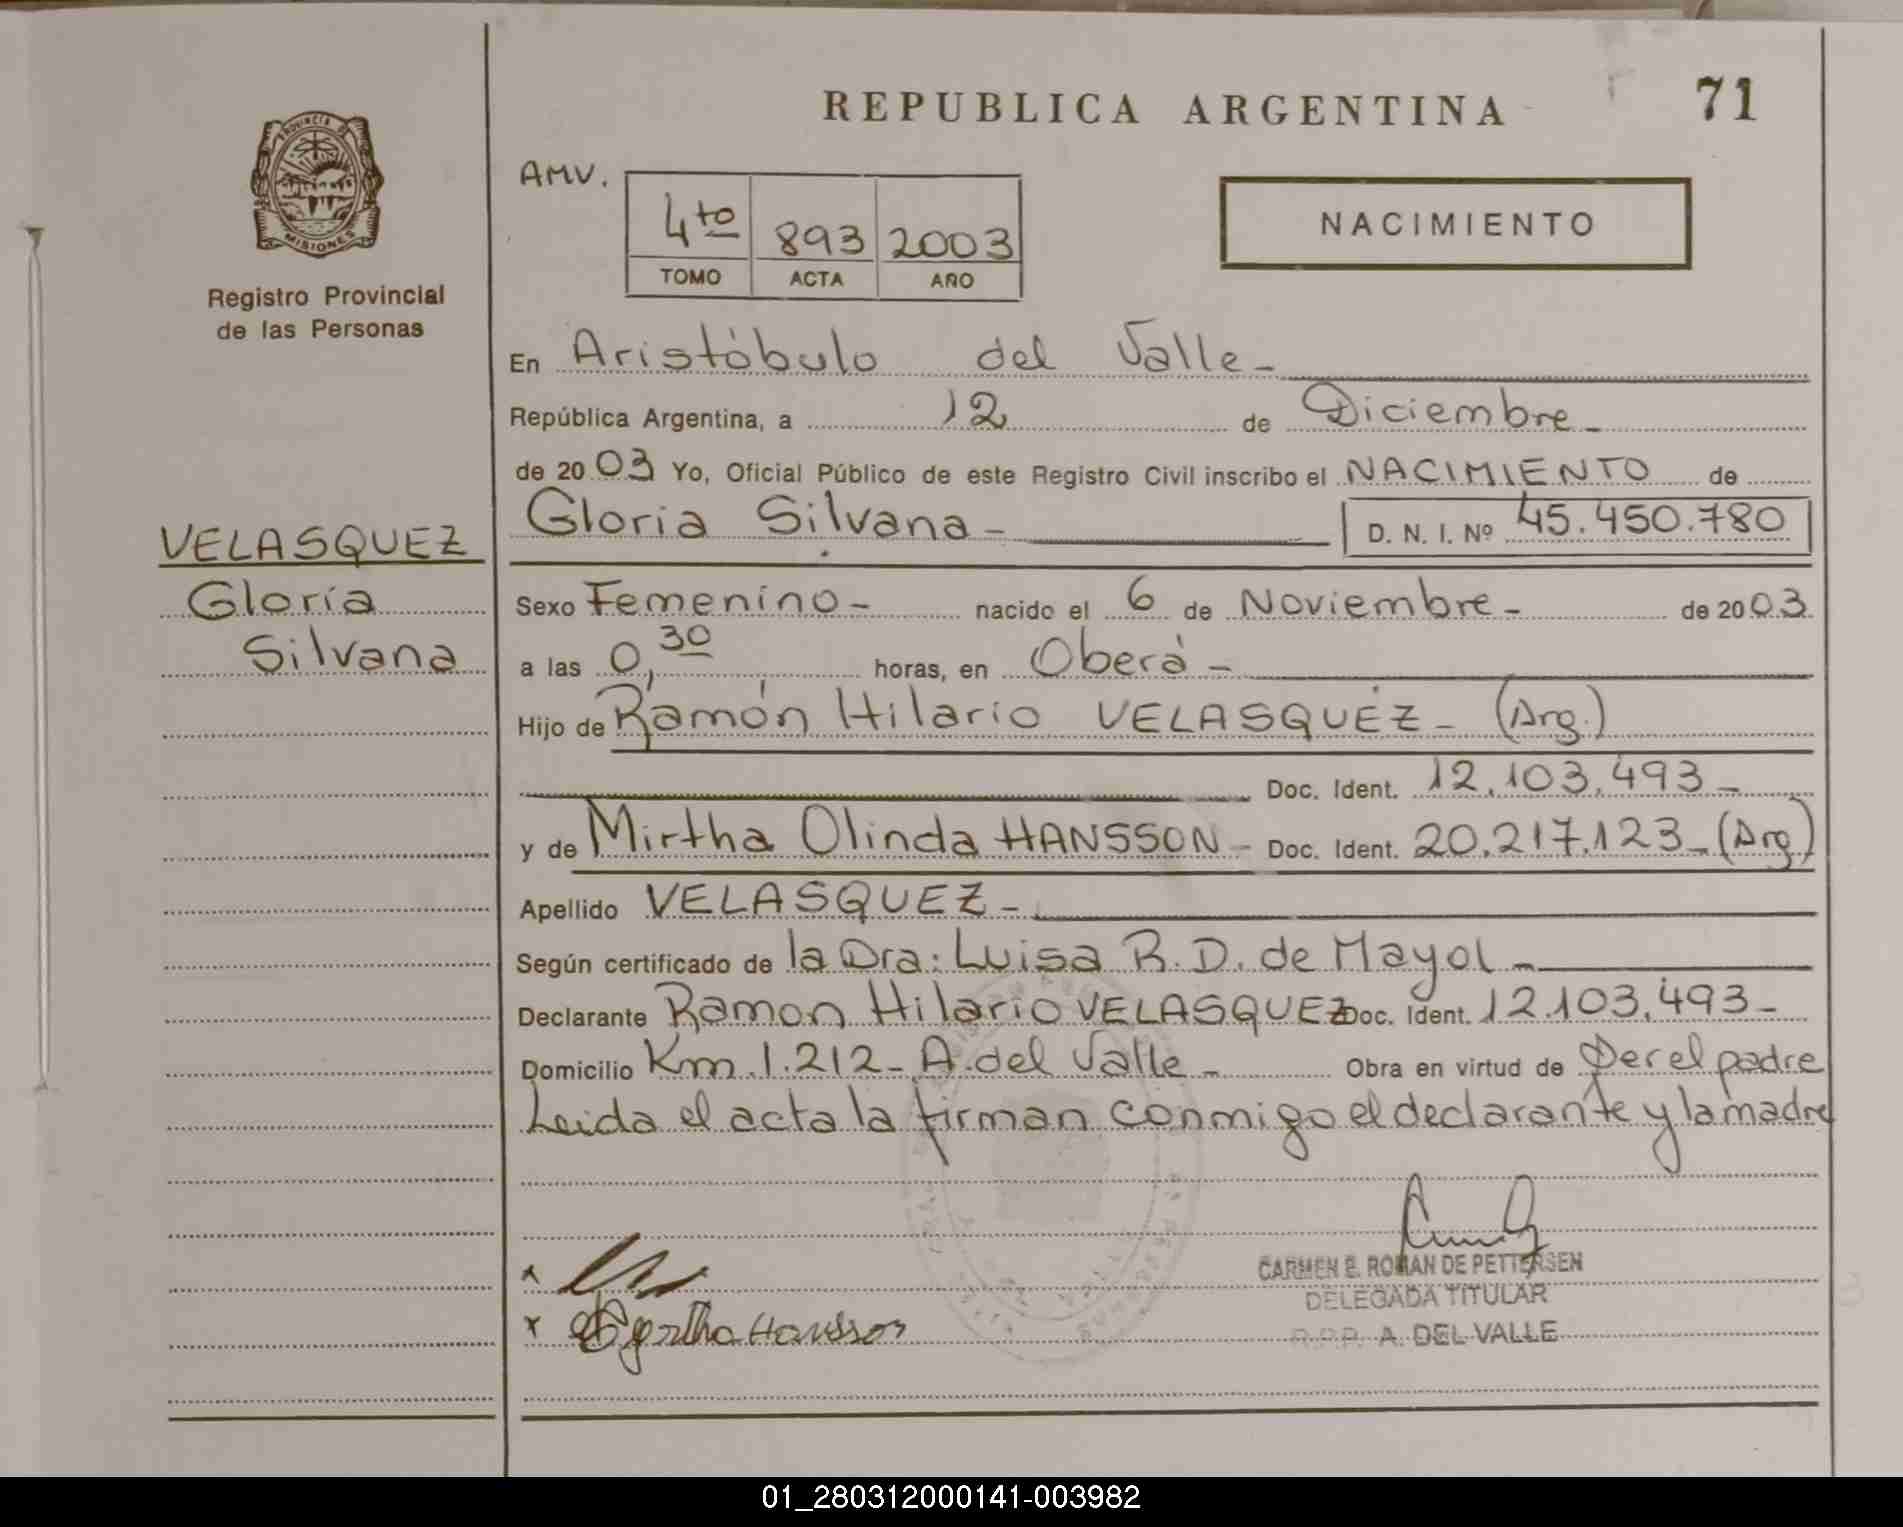 REPUBLICA ARGENTINA
71
PROVINCIA DE
MISIONES
Registro Provincial
de las Personas
AMV.
4to 893 2003
TOMO ACTA AÑO
NACIMIENTO
En Aristóbulo del Valle-
República Argentina, a 12 de Diciembre-
de 2003 Yo, Oficial Público de este Registro Civil inscribo el NACIMIENTO de
Gloria Silvana- D. N. I. Nº 45.450.780
VELASQUEZ
Gloria
Silvana
Sexo Femenino- nacido el 6 de Noviembre- de 2003
a las 0,30 horas, en Oberá-
Hijo de Ramón Hilario VELASQUEZ- (Arg.)
Doc. Ident. 12.103.493-
y de Mirtha Olinda HANSSON- Doc. Ident. 20.217.123-(Arg)
Apellido VELASQUEZ-
Según certificado de la Dra: Luisa R. D. de Mayol-
Declarante Ramon Hilario VELASQUEZ Doc. Ident. 12.103.493-
Domicilio Km. 1.212- A. del Valle- Obra en virtud de Ser el padre
Leida el acta la firman conmigo el declarante y la madre
CARMEN E. ROMAN DE PETTERSEN
DELEGADA TITULAR
R.P.P. A. DEL VALLE
x
x Hansson
01_280312000141-003982